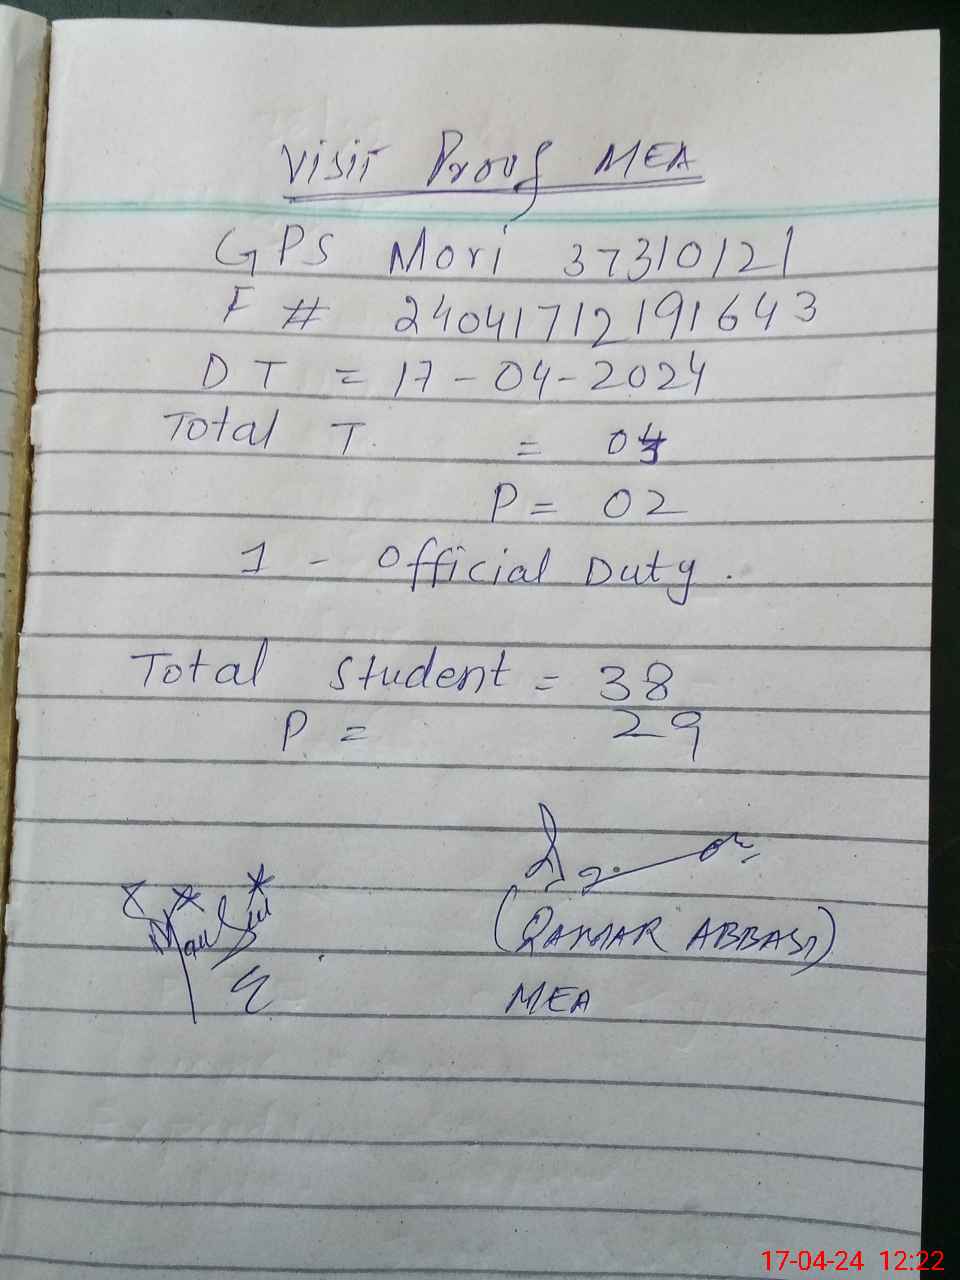 Visit Proof MEA
GPS Mori 37310121
F # 24041712191643
DT = 17-04-2024
Total T. = 03
P = 02
1 - Official Duty.
Total student = 38
P = 29
(QAMAR ABBASI)
MEA
17-04-24 12:22